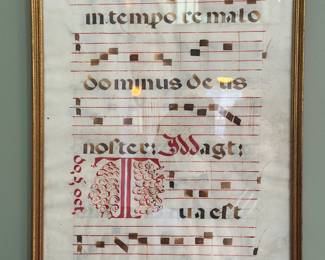 in tempo re malo
do minus de us
noster: Magt:
T ua est